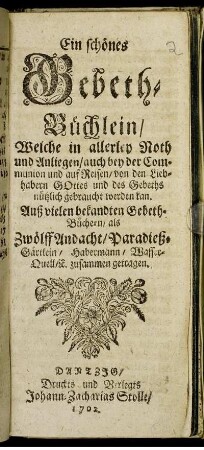 2
Ein schönes
Gebeth-
Büchlein/
Welche in allerley Noth
und Anliegen/ auch bey der Com-
munion und auf Reisen/ von den Lieb-
habern GOttes und des Gebeths
nützlich gebraucht werden kan.
Auß vielen bekandten Gebeth-
Büchern/ als
Zwölff Andacht/ Paradieß-
Gärtlein/ Habermann/ Wasser-
Quell/ ꝛc. zusammen getragen.
DANTZIG/
Druckts und Verlegts
Johann-Zacharias Stolle/
1702